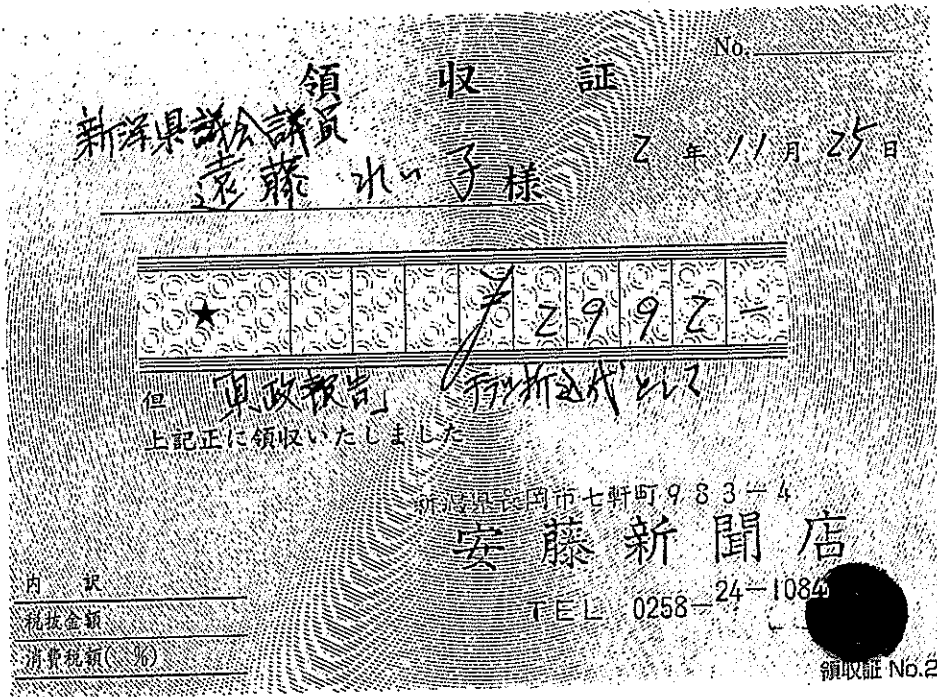 No.
領収証
新潟県議会議員
2年11月25日
遠藤 れい子様
★ ¥2992-
但 県政報告 チラシ折込代として
上記正に領収いたしました
新潟県長岡市七軒町983-4
安藤新聞店
TEL 0258-24-1084
内訳
税抜金額
消費税額( %)
領収証 No.2